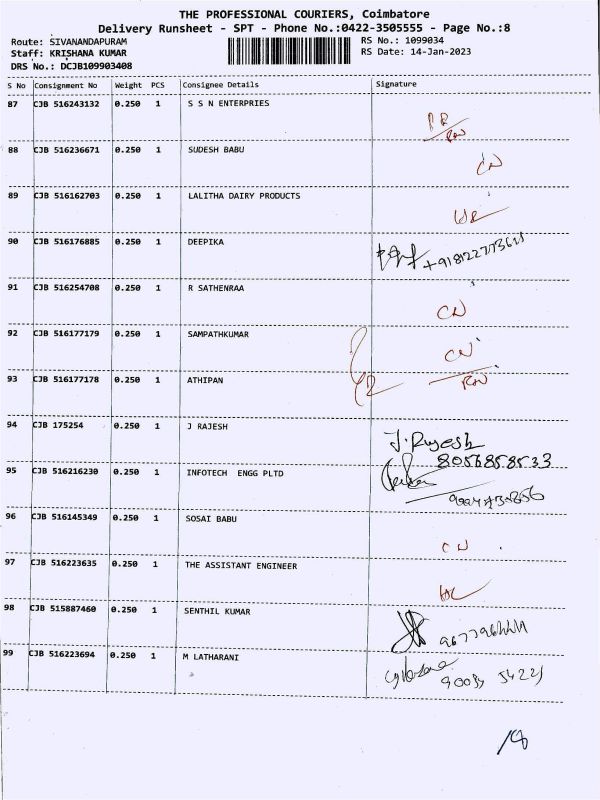 THE PROFESSIONAL COURIERS, Coimbatore
Delivery Runsheet - SPT - Phone No.:0422-3505555 - Page No.:8
Route: SIVANANDAPURAM RS No.: 1099034
Staff: KRISHANA KUMAR RS Date: 14-Jan-2023
DRS No.: DCJB109903408
S No Consignment No Weight PCS Consignee Details Signature
87 CJB 516243132 0.250 1 S S N ENTERPRIES
88 CJB 516236671 0.250 1 SUDESH BABU CN
89 CJB 516162703 0.250 1 LALITHA DAIRY PRODUCTS
90 CJB 516176885 0.250 1 DEEPIKA
91 CJB 516254708 0.250 1 R SATHENRAA CN
92 CJB 516177179 0.250 1 SAMPATHKUMAR CN
93 CJB 516177178 0.250 1 ATHIPAN
94 CJB 175254 0.250 1 J RAJESH J.Rajesh
8056858533
95 CJB 516216230 0.250 1 INFOTECH ENGG PLTD
96 CJB 516145349 0.250 1 SOSAI BABU CN
97 CJB 516223635 0.250 1 THE ASSISTANT ENGINEER
98 CJB 515887460 0.250 1 SENTHIL KUMAR
99 CJB 516223694 0.250 1 M LATHARANI